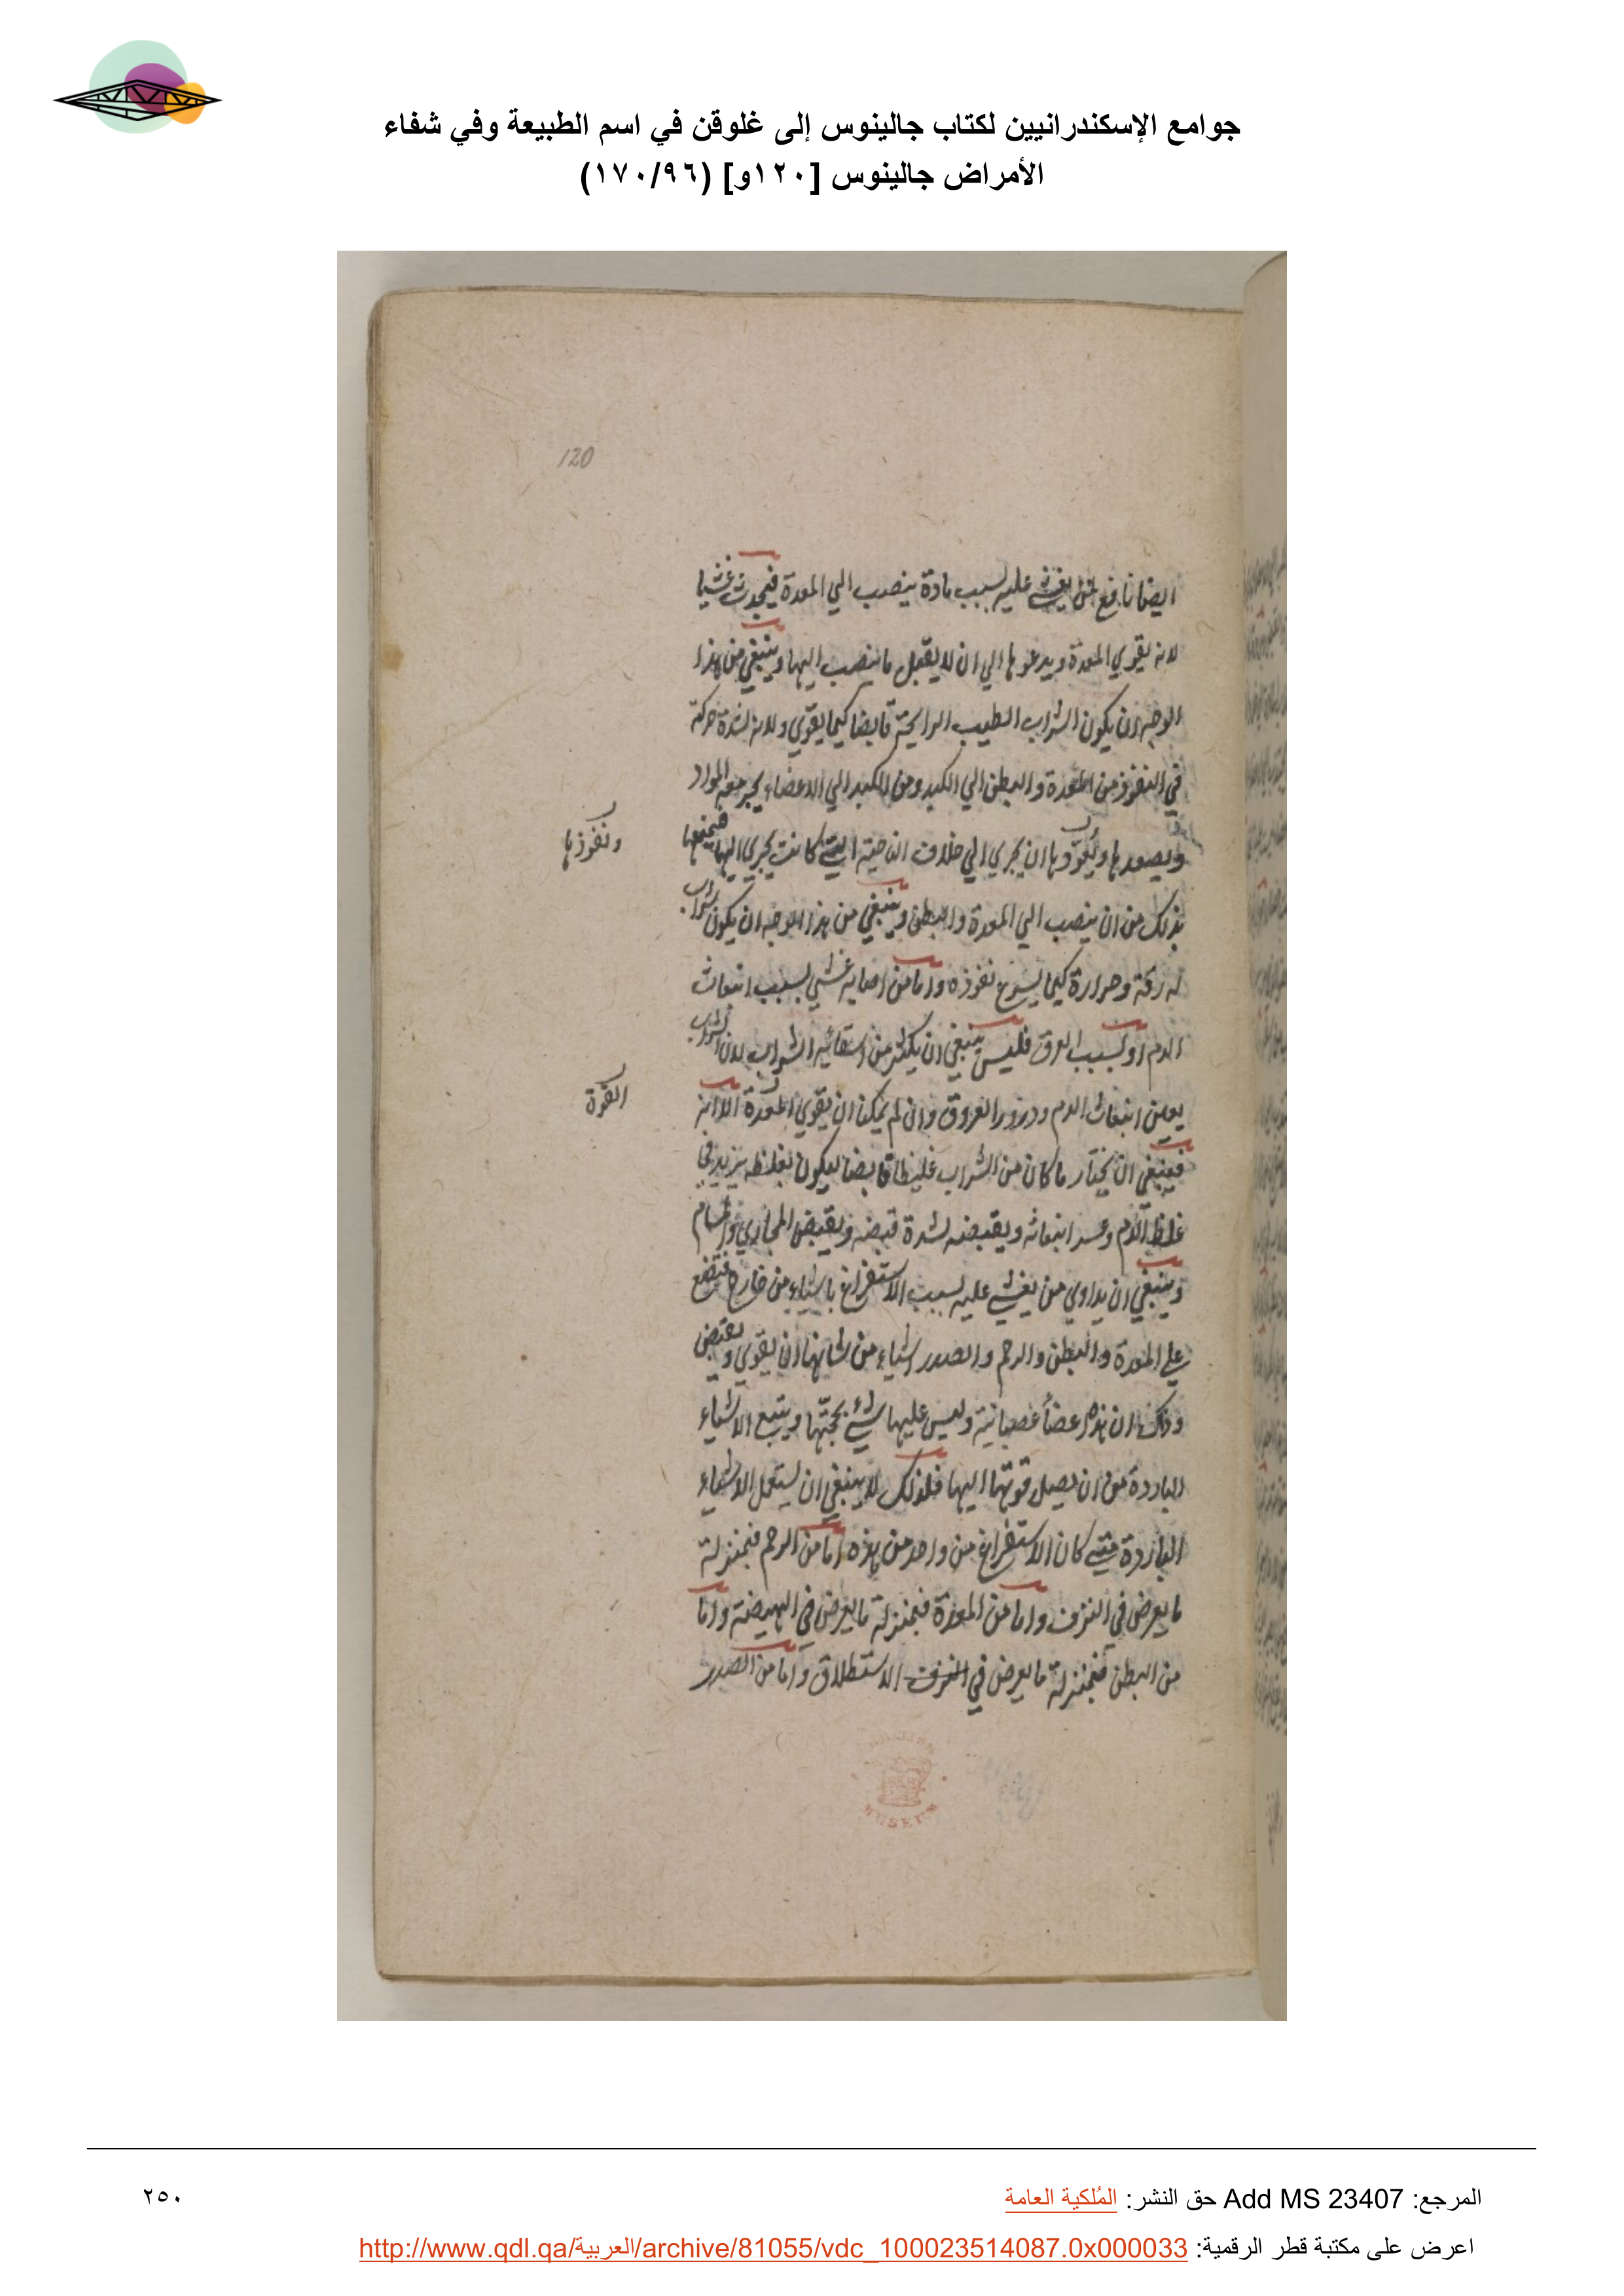 جوامع الإسكندرانيين لكتاب جالينوس إلى غلوقن في اسم الطبيعة وفي شفاء
الأمراض جالينوس [١٢٠و] (١٧٠/٩٦)
120
ايضا نافع لمن يغشى عليه لسبب مادة ينصب الي المعدة فيحدث غشيا
لانه يقوي المعدة ويدعوها الي ان لا يقبل ما ينصب اليها وينبغي من هذا
الوجه ان يكون الشراب الطيب الرايحة قابضا كيما يقوي ولانه لشدة حركته
في النفوذ من المعدة والبطن الي الكبد ومن الكبد الي الاعضاء يجر معه المواد
ويصعدها ويقودها ان يجري الي خلاف الناحية التي كانت يجري اليها فيمنعها
ونفوذها
بذلك من ان ينصب الي المعدة والبطن وينبغي من هذا الوجه ان يكون شراب
له رقة وحرارة كيما يسرع نفوذه واما من اصابه غشي لسبب انبعاث
الدم او لسبب العرق فليس ينبغي ان يكثر من اسقائه الشراب لان الشراب
يعين انبعاث الدم ودرور العروق وان لم يمكن ان يقوي المعدة الا به
القوة
فينبغي ان يختار ما كان من الشراب غليظا قابضا ليكون بغلظه يزيد في
غلظ الدم وعسر انبعاثه ويقبضه لشدة قبضه ويقبض المجاري والمسام
وينبغي ان يداوي من يغشى عليه لسبب الاستفراغ باشياء من خارج فتضع
علي المعدة والبطن والرحم والصدر اشياء من شانها ان يقوي ويقبض
وذلك ان هذه اعضأ عصبانية وليس عليها شيء يجنّها ويتبع الاشياء
الباردة من ان يصل قوتها اليها فلذلك لا ينبغي ان يستعمل الاشياء
الباردة متي كان الاستفراغ من واحد من هذه اما من الرحم فبمنزلة
ما يعرض في النزف واما من المعدة فبمنزلة ما يعرض في الهيضة واما
من البطن فبمنزلة ما يعرض في النزف الاستطلاق واما من الصدر
المرجع: Add MS 23407 حق النشر: المُلكية العامة
٢٥٠
اعرض على مكتبة قطر الرقمية: http://www.qdl.qa/العربية/archive/81055/vdc_100023514087.0x000033